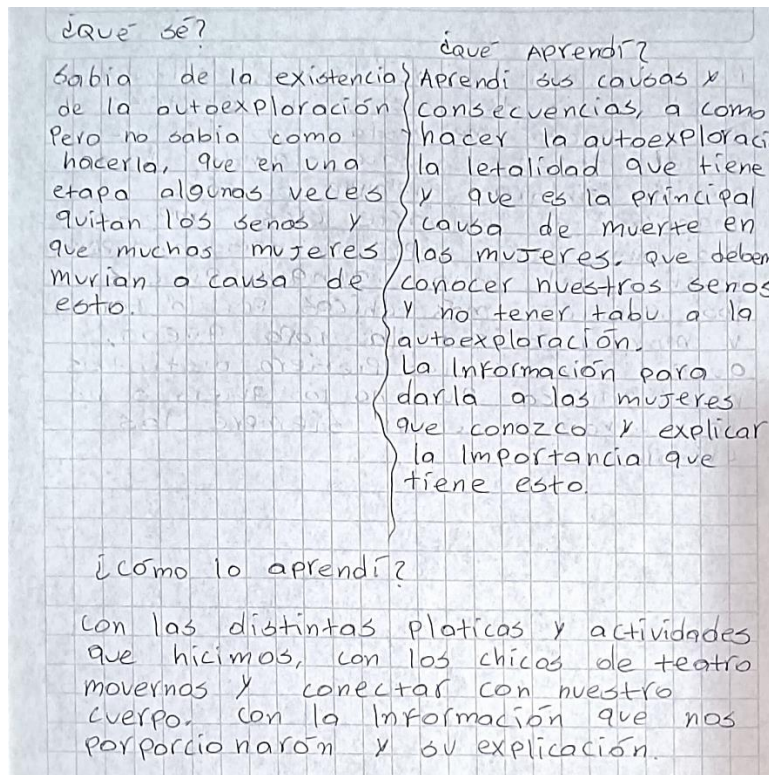 ¿Qué sé?
Sabia de la existencia
de la autoexploración
Pero no sabia como
hacerla, que en una
etapa algunas veces
quitan los senos y
que muchas mujeres
murian a causa de
esto.
¿Qué Aprendí?
Aprendi sus causas y
consecuencias, a como
hacer la autoexploraci
la letalidad que tiene
y que es la principal
causa de muerte en
las mujeres. Que deben
conocer nuestros senos
y no tener tabu a la
autoexploración.
La Información para
darla a las mujeres
que conozco y explicar
la Importancia que
tiene esto.
¿cómo lo aprendí?
con las distintas platicas y actividades
que hicimos, con los chicos de teatro
movernos y conectar con nuestro
cuerpo. con la Información que nos
porporcionarón y su explicación.